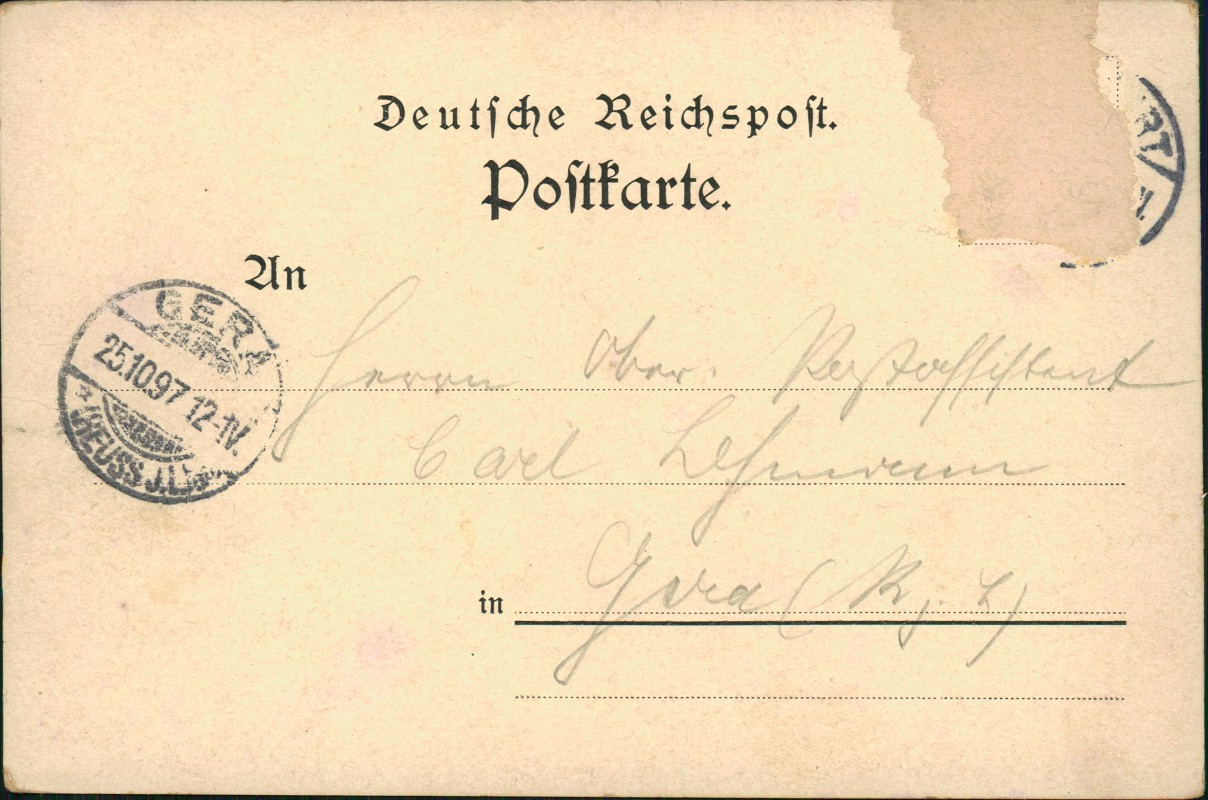 Deutsche Reichspost.
Postkarte.
RT
An
GERA
25.10.97 12-1V.
* (REUSS J.L.)
Herrn Ober. Postassistent
Carl Lehmann
in Gera (R. j. L)